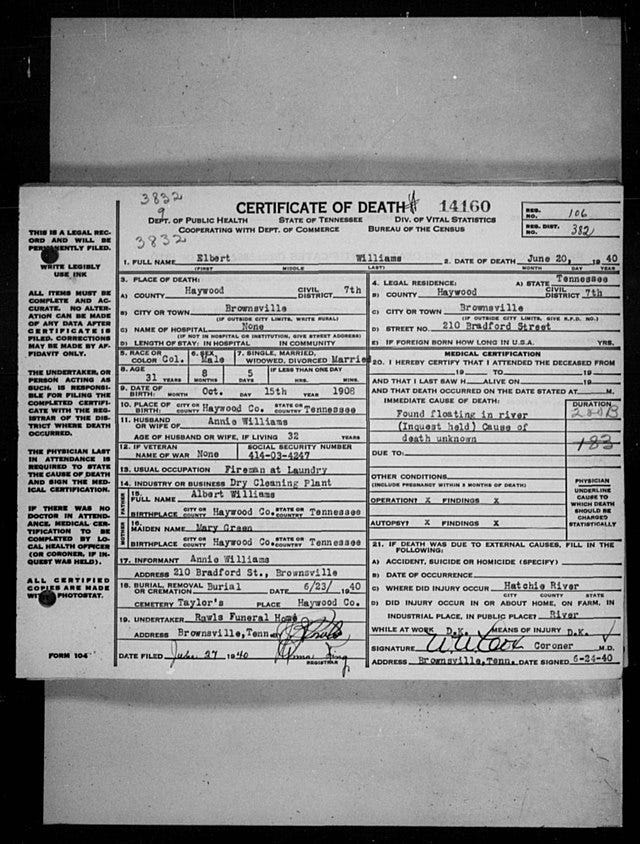 3832
9
CERTIFICATE OF DEATH # 14160
DEPT. OF PUBLIC HEALTH STATE OF TENNESSEE DIV. OF VITAL STATISTICS
COOPERATING WITH DEPT. OF COMMERCE BUREAU OF THE CENSUS
3832
REG. NO. 106
REG. DIST. NO. 382
THIS IS A LEGAL REC-
ORD AND WILL BE
PERMANENTLY FILED.
WRITE LEGIBLY
USE INK
ALL ITEMS MUST BE
COMPLETE AND AC-
CURATE. NO ALTER-
ATION CAN BE MADE
OF ANY DATA AFTER
CERTIFICATE IS
FILED. CORRECTIONS
MAY BE MADE BY AF-
FIDAVIT ONLY.
THE UNDERTAKER, OR
PERSON ACTING AS
SUCH, IS RESPONSI-
BLE FOR FILING THE
COMPLETED CERTIFI-
CATE WITH THE REG-
ISTRAR OF THE DIS-
TRICT WHERE DEATH
OCCURRED.
THE PHYSICIAN LAST
IN ATTENDANCE IS
REQUIRED TO STATE
THE CAUSE OF DEATH
AND SIGN THE MED-
ICAL CERTIFICATION.
IF THERE WAS NO
DOCTOR IN ATTEND-
ANCE, MEDICAL CER-
TIFICATION TO BE
COMPLETED BY LO-
CAL HEALTH OFFICER
(OR CORONER, IF IN-
QUEST WAS HELD).
ALL CERTIFIED
COPIES ARE MADE
WITH PHOTOSTAT.
FORM 104
1. FULL NAME Elbert Williams 2. DATE OF DEATH June 20, 1940
(FIRST) MIDDLE LAST) MONTH DAY YEAR
3. PLACE OF DEATH:
A) COUNTY Haywood CIVIL DISTRICT 7th
B) CITY OR TOWN Brownsville
(IF OUTSIDE CITY LIMITS, WRITE RURAL)
C) NAME OF HOSPITAL None
(IF NOT IN HOSPITAL OR INSTITUTION, GIVE STREET ADDRESS)
D) LENGTH OF STAY: IN HOSPITAL IN COMMUNITY
5. RACE OR COLOR Col. 6. SEX Male 7. SINGLE, MARRIED, WIDOWED, DIVORCED Married
8. AGE 31 YEARS 8 MONTHS 5 DAYS IF LESS THAN ONE DAY HRS. MINS.
9. DATE OF BIRTH: Oct. 15th 1908
MONTH DAY YEAR
10. PLACE OF BIRTH CITY OR COUNTY Haywood Co. STATE OR COUNTRY Tennessee
11. HUSBAND OR WIFE OF Annie Williams
AGE OF HUSBAND OR WIFE, IF LIVING 32 YEARS
12. IF VETERAN NAME OF WAR None SOCIAL SECURITY NUMBER 414-03-4247
13. USUAL OCCUPATION Fireman at Laundry
14. INDUSTRY OR BUSINESS Dry Cleaning Plant
FATHER 15. FULL NAME Albert Williams
BIRTHPLACE CITY OR COUNTY Haywood Co. STATE OR COUNTRY Tennessee
MOTHER 16. MAIDEN NAME Mary Green
BIRTHPLACE CITY OR COUNTY Haywood Co. STATE OR COUNTRY Tennessee
17. INFORMANT Annie Williams
ADDRESS 210 Bradford St., Brownsville
18. BURIAL, REMOVAL OR CREMATION Burial DATE 6/23/ 1940
CEMETERY Taylor's PLACE Haywood Co.
19. UNDERTAKER Rawls Funeral Home
ADDRESS Brownsville, Tenn.
DATE FILED 27 1940
REGISTRAR
4. LEGAL RESIDENCE: A) STATE Tennessee
B) COUNTY Haywood CIVIL DISTRICT 7th
C) CITY OR TOWN Brownsville
(IF OUTSIDE CITY LIMITS, GIVE R.F.D. NO.)
D) STREET NO. 210 Bradford Street
E) IF FOREIGN BORN HOW LONG IN U.S.A. YRS.
MEDICAL CERTIFICATION
20. I HEREBY CERTIFY THAT I ATTENDED THE DECEASED FROM
19 TO 19
AND THAT I LAST SAW H ALIVE ON 19
AND THAT DEATH OCCURRED ON THE DATE STATED AT M.
IMMEDIATE CAUSE OF DEATH: DURATION
Found floating in river
(Inquest held) Cause of
death unknown
183
DUE TO:
OTHER CONDITIONS
(INCLUDE PREGNANCY WITHIN 3 MONTHS OF DEATH)
OPERATION? X FINDINGS X
AUTOPSY? X FINDINGS X
PHYSICIAN
UNDERLINE
CAUSE TO
WHICH DEATH
SHOULD BE
CHARGED
STATISTICALLY
21. IF DEATH WAS DUE TO EXTERNAL CAUSES, FILL IN THE
FOLLOWING:
A) ACCIDENT, SUICIDE OR HOMICIDE (SPECIFY)
B) DATE OF OCCURRENCE
C) WHERE DID INJURY OCCUR Hatchie River
CITY COUNTY STATE
D) DID INJURY OCCUR IN OR ABOUT HOME, ON FARM, IN
INDUSTRIAL PLACE, IN PUBLIC PLACE? River
WHILE AT WORK D.K. MEANS OF INJURY D.K.
SIGNATURE Coroner M.D.
ADDRESS Brownsville, Tenn. DATE SIGNED 6-24-40